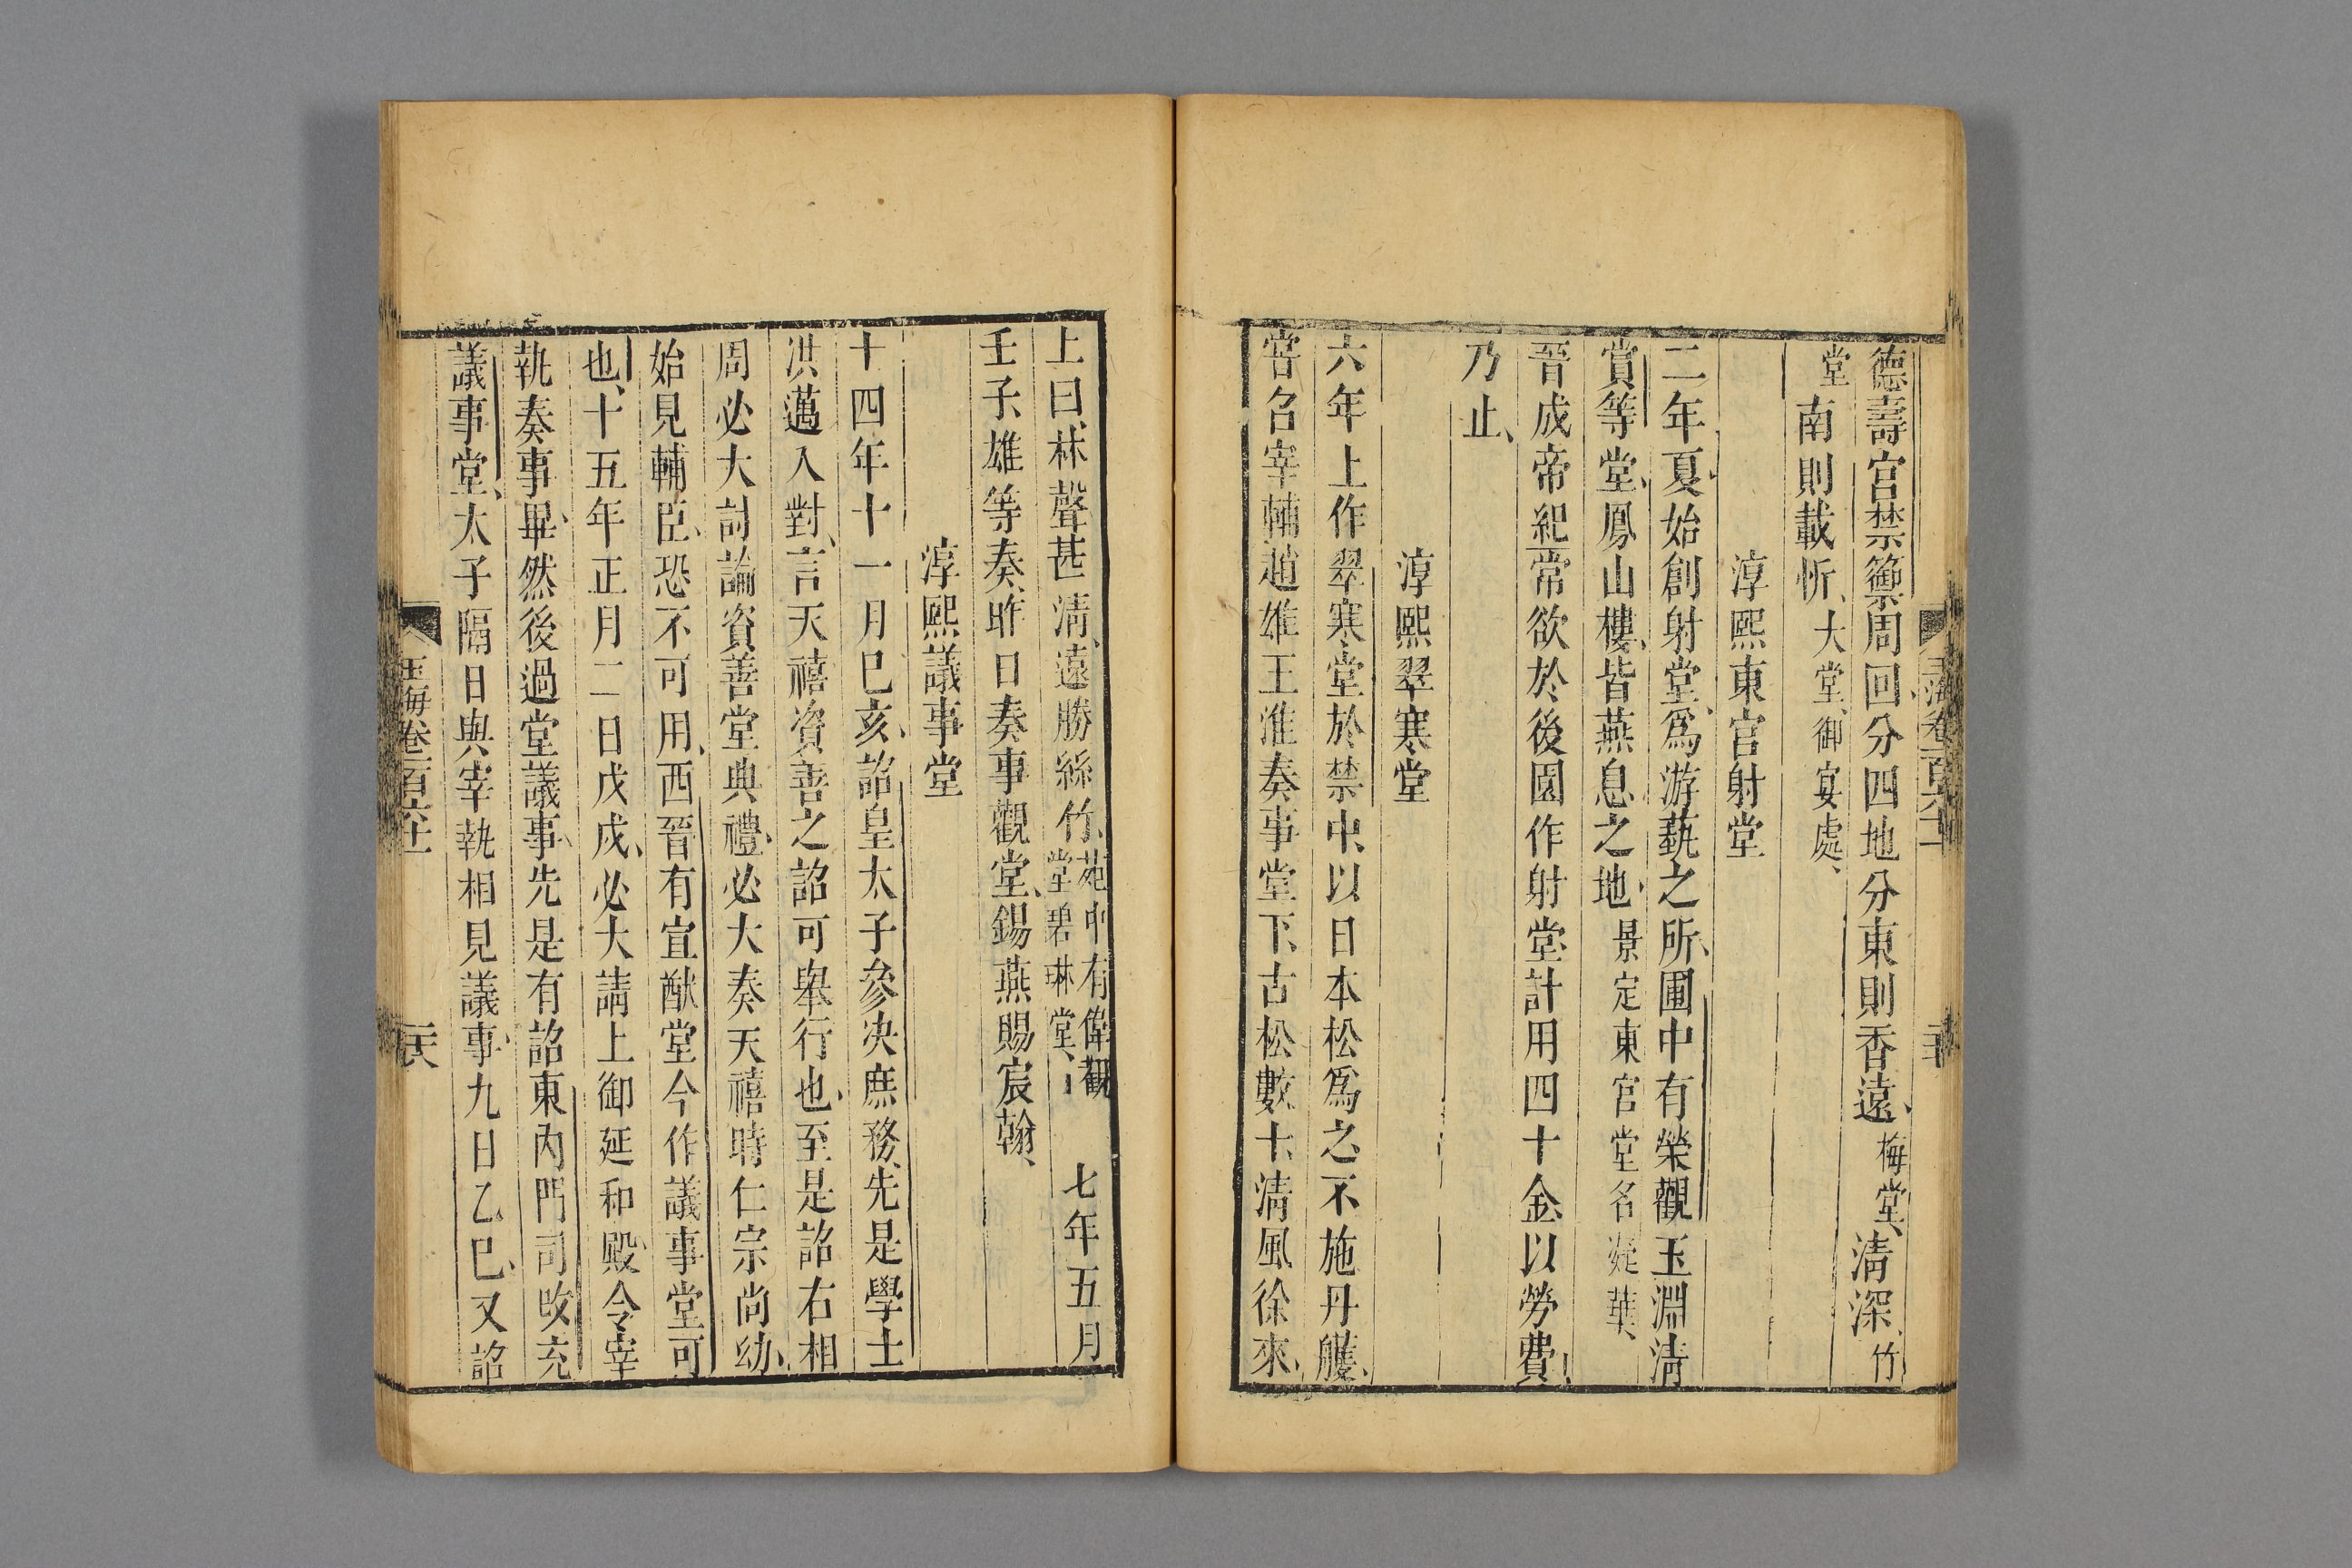 德壽宮禁籞周回分四地分東則香遠梅堂清深竹
堂南則載忻大堂御宴處
淳熙東宮射堂
二年夏始創射堂爲游藝之所圃中有榮觀玉淵清
賞等堂鳳山樓皆燕息之地景定東宮堂名凝華
晉成帝紀常欲於後園作射堂計用四十金以勞費
乃止
淳熙翠寒堂
六年上作翠寒堂於禁中以日本松爲之不施丹雘
嘗召宰輔趙雄王淮奏事堂下古松數十清風徐來
上曰林聲甚清遠勝絲竹苑中有偉觀堂碧琳堂 七年五月
壬子雄等奏昨日奏事觀堂錫燕賜宸翰
淳熙議事堂
十四年十一月己亥詔皇太子參決庶務先是學士
洪邁入對言天禧資善之詔可舉行也至是詔右相
周必大討論資善堂典禮必大奏天禧時仁宗尚幼
始見輔臣恐不可用西晉有宣猷堂今作議事堂可
也十五年正月二日戊戌必大請上御延和殿令宰
執奏事畢然後過堂議事先是有詔東內門司改充
議事堂太子隔日與宰執相見議事九日乙巳又詔
玉海卷一百六十一